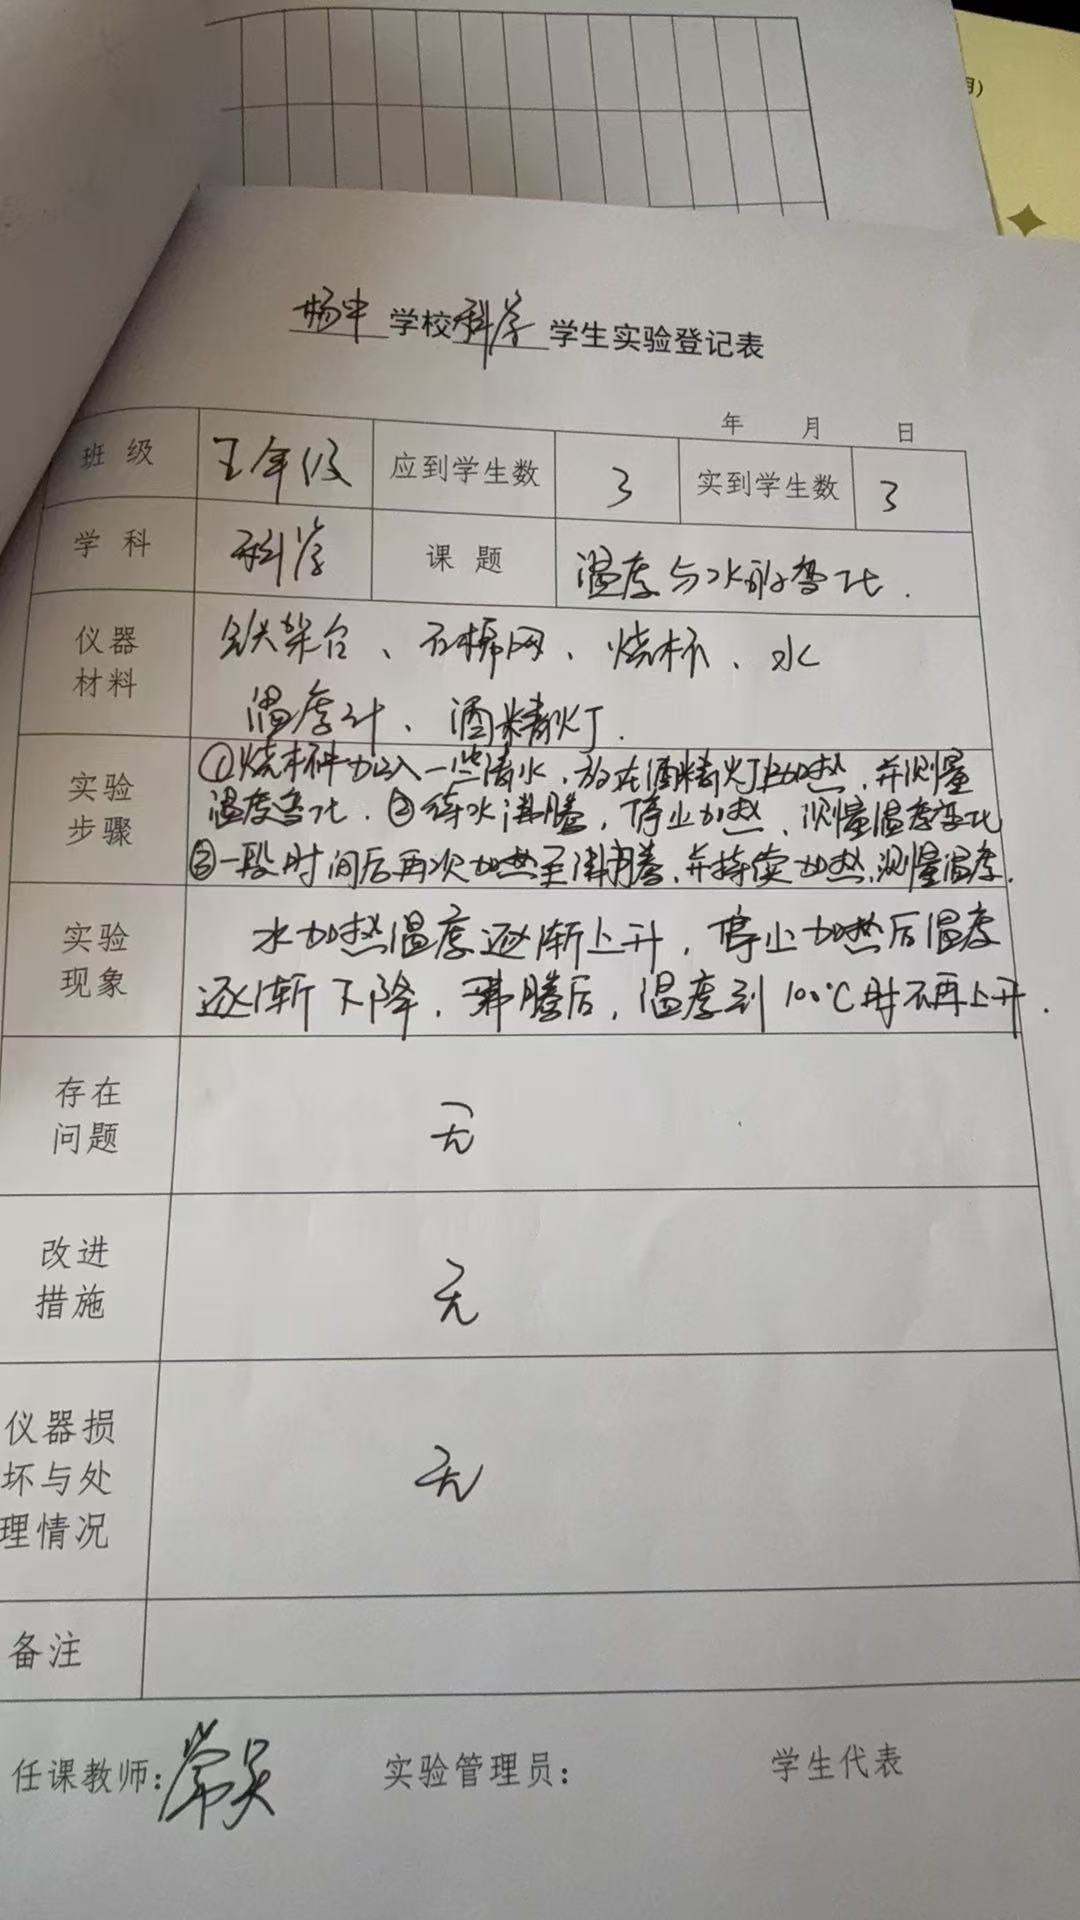 月）
杨中学校科学学生实验登记表
年 月 日
班 级 五年级 应到学生数 3 实到学生数 3
学 科 科学 课 题 温度与水的变化.
仪器 铁架台、石棉网、烧杯、水
材料 温度计、酒精灯.
①烧杯中加入一些清水，放在酒精灯上加热，并测量
实验 温度变化.②待水沸腾，停止加热，测量温度变化
步骤 ③一段时间后再次加热至沸腾，并持续加热，测量温度.
实验 水加热温度逐渐上升，停止加热后温度
现象 逐渐下降.沸腾后，温度到100℃时不再上升.
存在
问题 无
改进
措施 无
仪器损
坏与处 无
理情况
备注
任课教师： 实验管理员： 学生代表